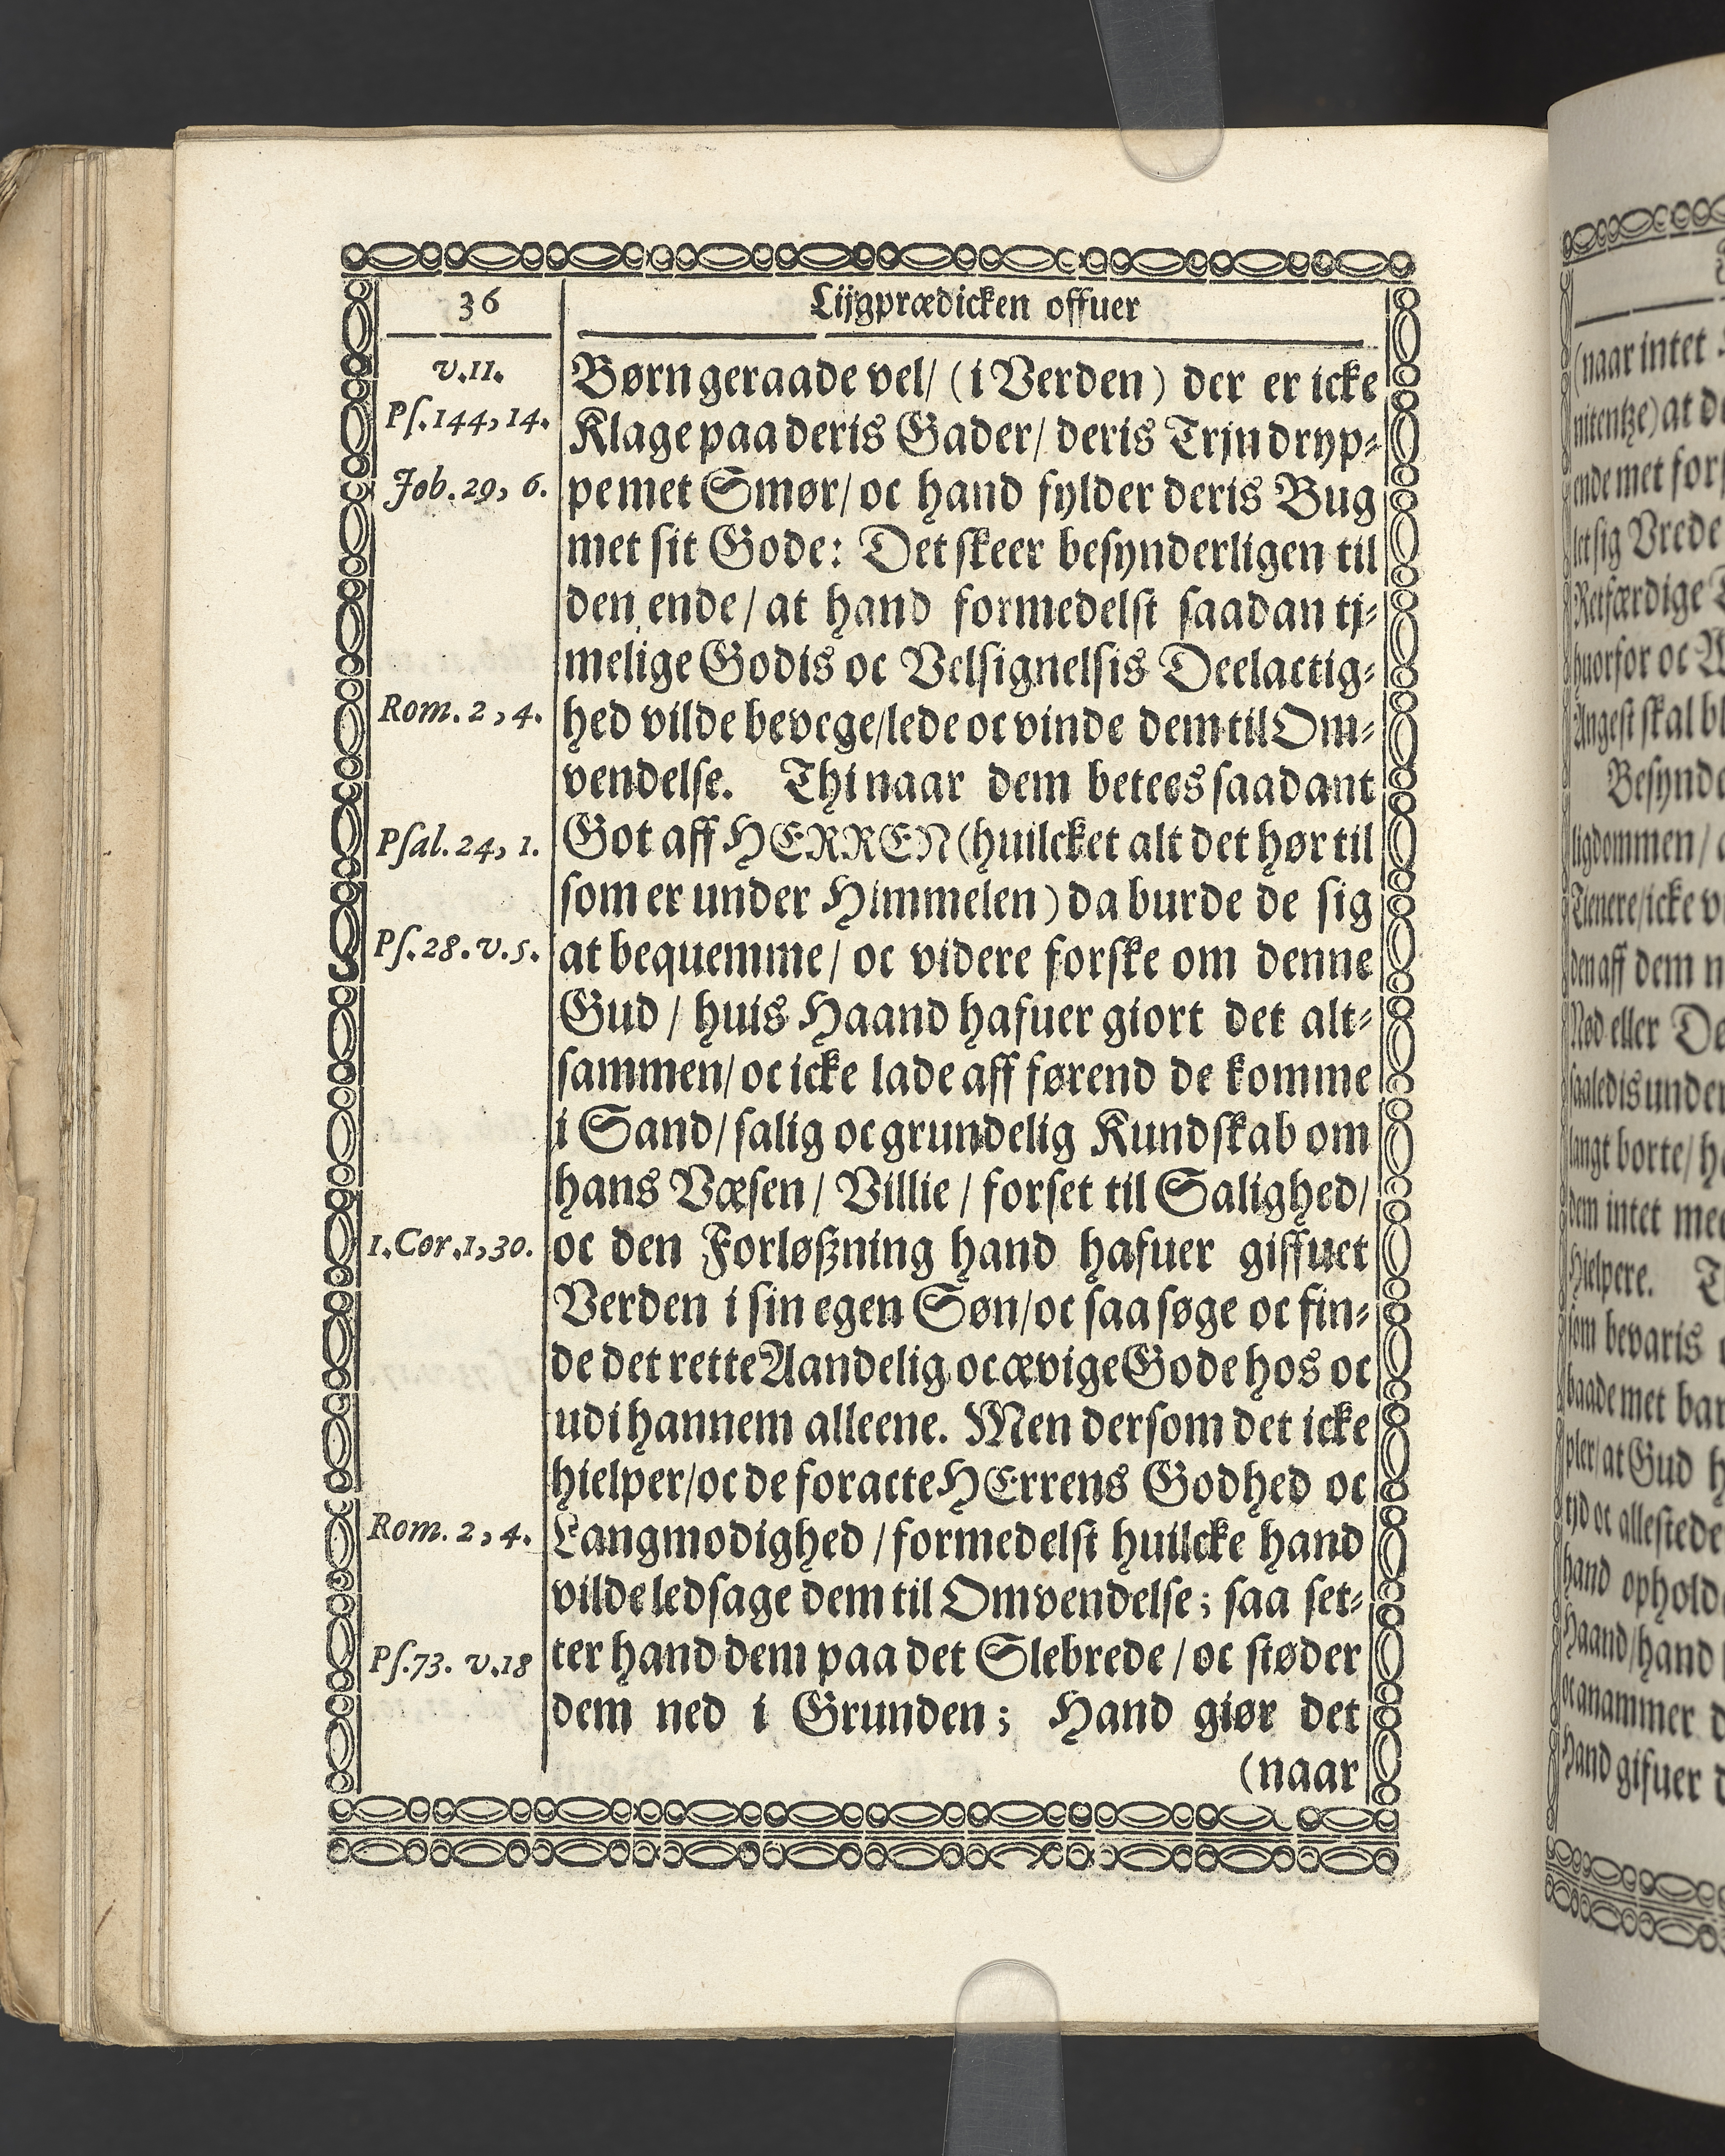 36
Lijgprædicken offuer
v.11.
Ps.144,14.
Job.29, 6.
Rom. 2, 4.
Psal. 24, 1.
Ps.28.v.5.
1.Cor.1,30.
Rom. 2, 4.
Ps.73. v.18
Børn geraade vel/ (i Verden) der er icke
Klage paa deris Gader/ deris Trin dryp-
pe met Smør/ oc hand fylder deris Bug
met sit Gode: Det skeer besynderligen til
den ende/ at hand formedelst saadan tj-
melige Godis oc Velsignelsis Deelactig-
hed vilde bevege/lede oc vinde dem til Om-
vendelse. Thi naar dem betees saadant
Got aff HERREN (huilcket alt det hør til
som er under Himmelen) da burde de sig
at bequemme/ oc videre forske om denne
Gud/ huis Haand hafuer giort det alt-
sammen/ oc icke lade aff førend de komme
i Sand/ salig oc grundelig Kundskab om
hans Væsen/ Villie/ forset til Salighed/
oc den Forløßning hand hafuer giffuet
Verden i sin egen Søn/oc saa søge oc fin-
de det rette Aandelig oc ævige Gode hos oc
udi hannem alleene. Men dersom det icke
hielper/oc de foracte HErrens Godhed oc
Langmodighed/ formedelst huilcke hand
vilde ledsage dem til Omvendelse; saa set-
ter hand dem paa det Slebrede/ oc støder
dem ned i Grunden; Hand giør det
(naar
(naar intet
nitentze) at
ende met
let sig Vrede
Retfærdige
huorfor oc
Angest skal
ligdommen/
Tienere/icke
den aff dem
Nød eller
saaledis
langt borte/
dem intet
Hielpere.
som bevaris
baade met
pler/at Gud
tid oc
hand
Haand/hand
oc anammer
Hand gifuer